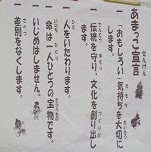 あまっこ宣言
せんげん
一「おもしろい」気持ちを大切に
します。
一 伝統を守り、文化を創り出し
ます。
一 人をいたわります。
命は一人ひとつの宝物です。
一 いじめはしません。
差別をなくします。